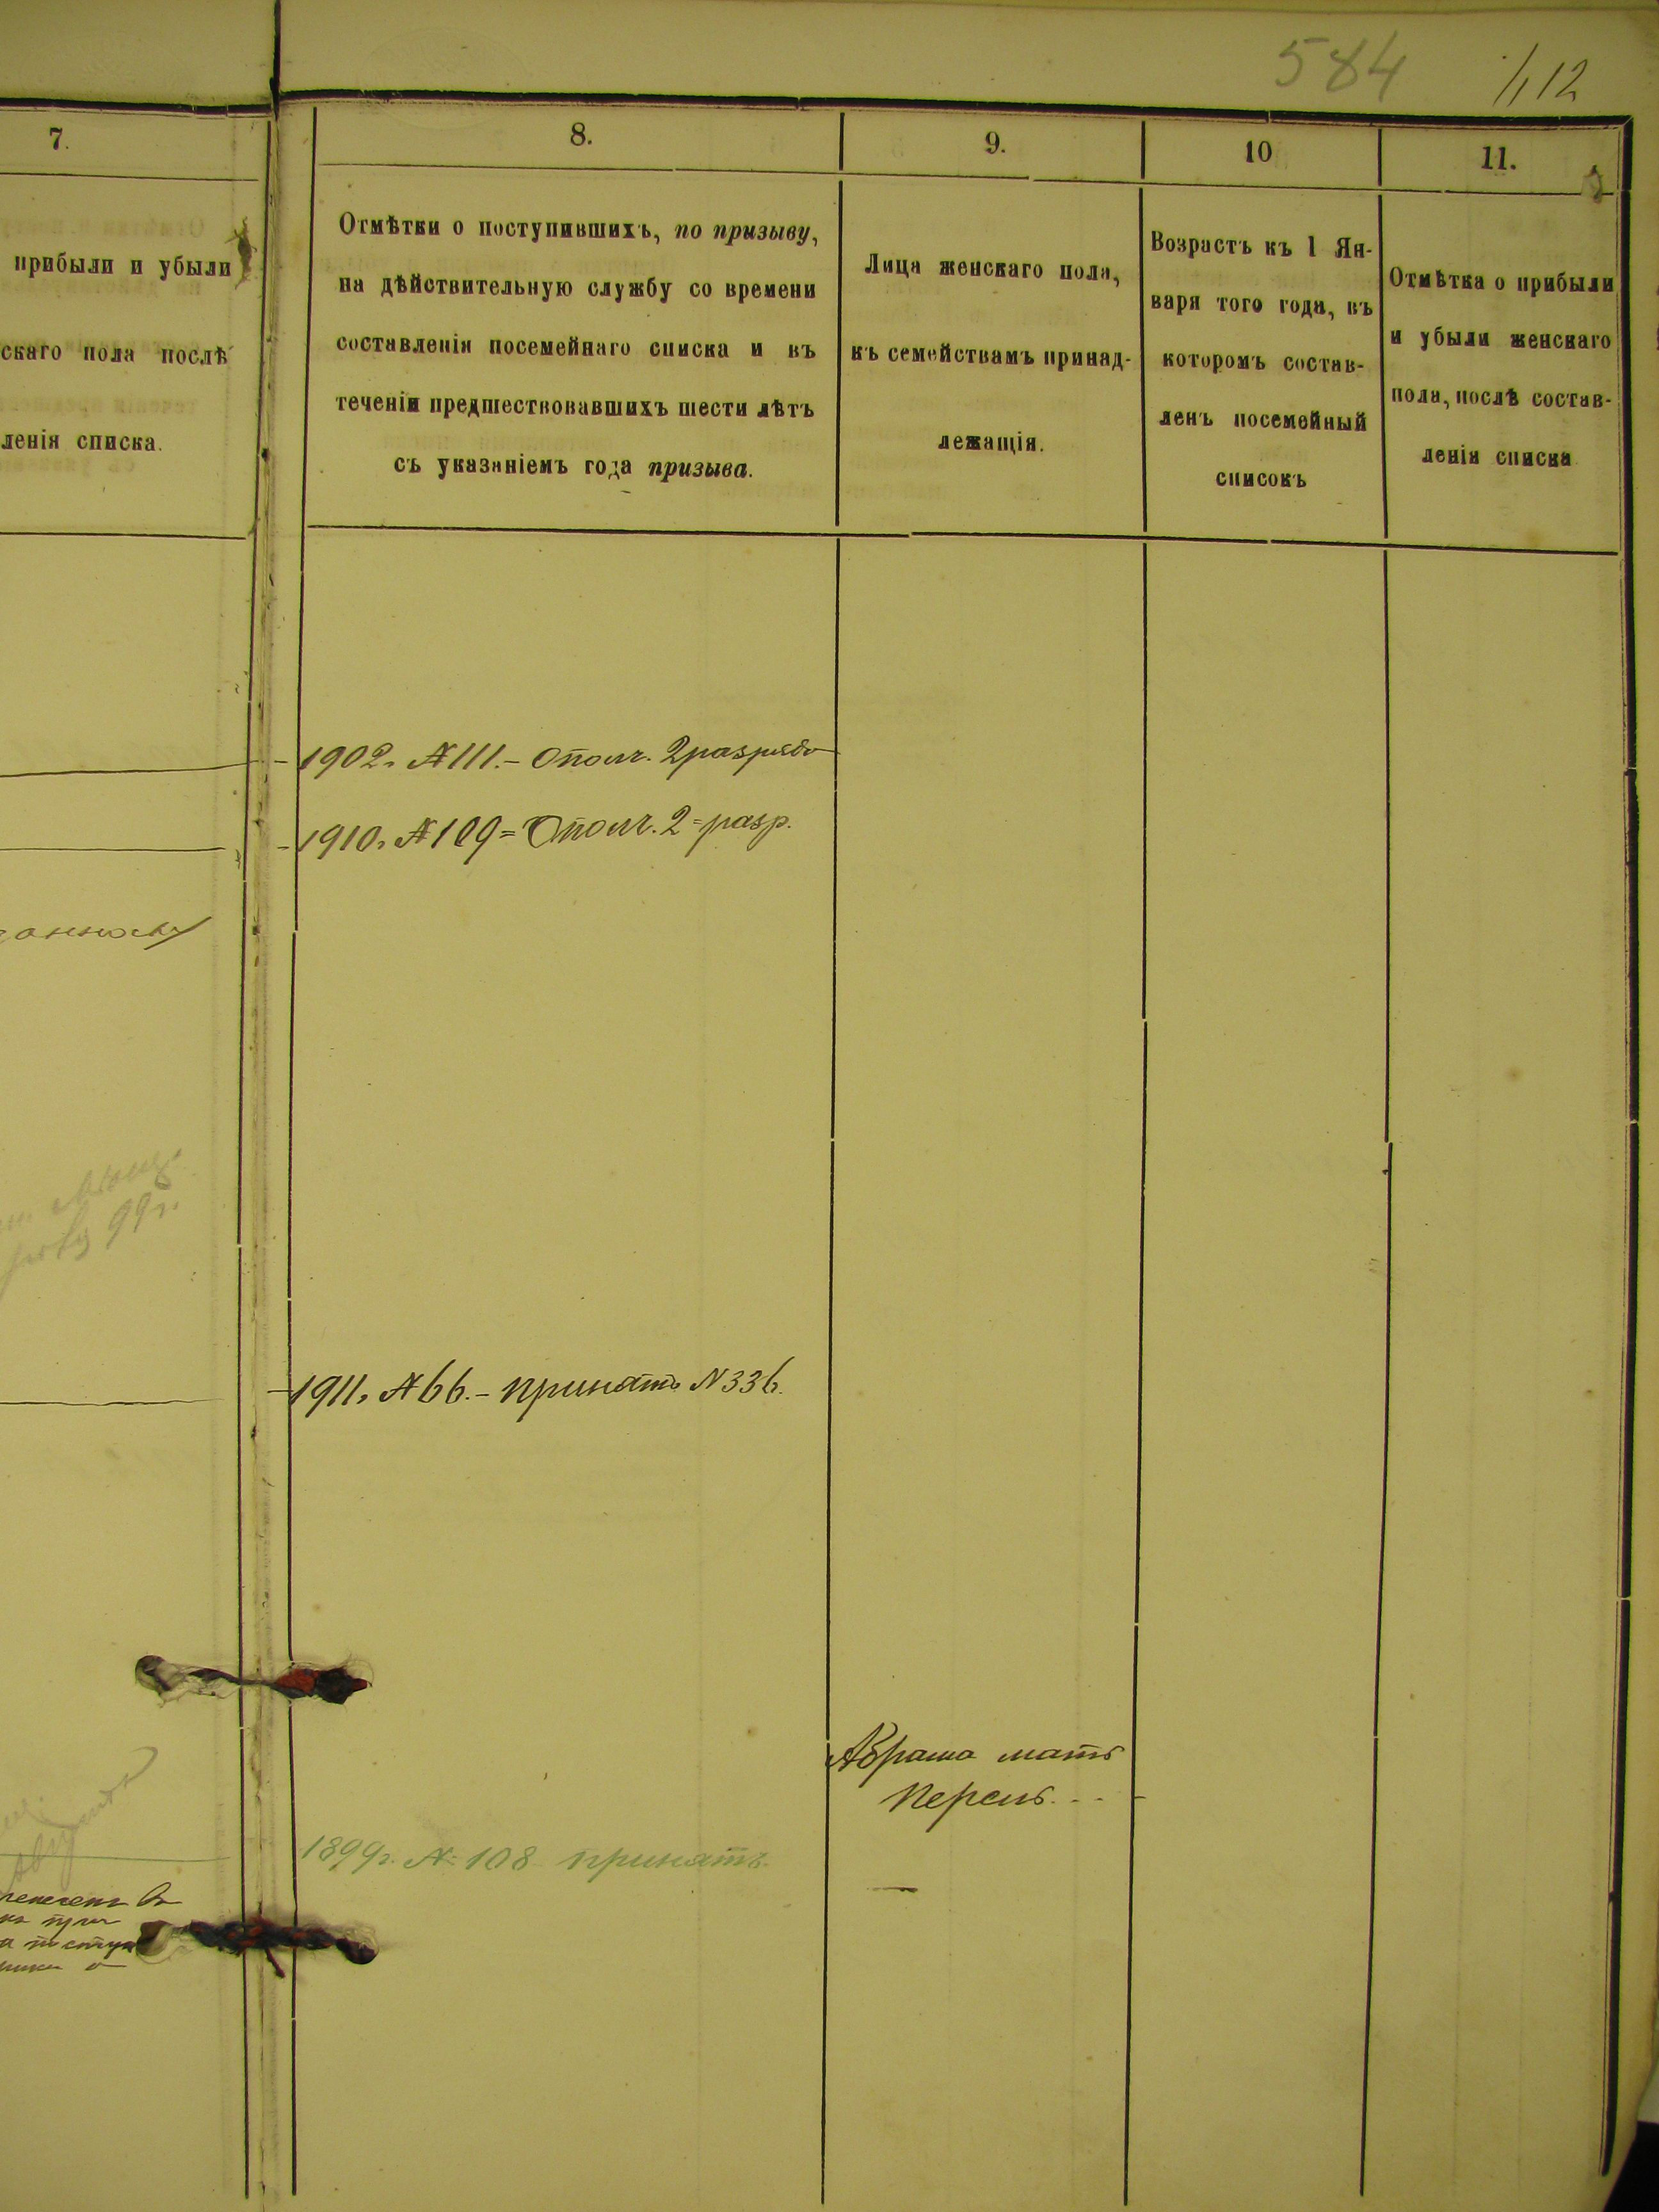 584 112
7.
8.
9.
10
11.
прибыли и убыли
скаго пола послѣ
ленія списка.
Отмѣтки о поступившихъ, по призыву,
на дѣйствительную службу со времени
составленія посемейнаго списка и въ
теченіи предшествовавшихъ шести лѣтъ
съ указаніемъ года призыва.
Лица женскаго пола,
къ семействамъ принад-
лежащія.
Возрастъ къ 1 Ян-
варя того года, въ
которомъ состав-
ленъ посемейный
списокъ
Отмѣтка о прибыли
и убыли женскаго
пола, послѣ состав-
ленія списка
1902г. №111.- Ополч. 2 разряда
1910г. №109= Ополч. 2= разр.
99г.
1911г. №66.- принятъ №336.
Абрама мать
Перель...
1899г. № 108 принятъ.